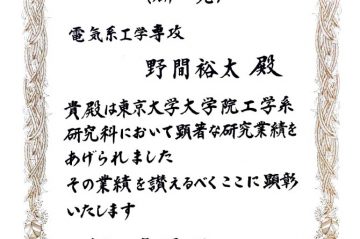 電気系工学専攻
野間裕太 殿
貴殿は東京大学大学院工学系
研究科において顕著な研究業績を
あげられました
その業績を讃えるべくここに顕彰
いたします